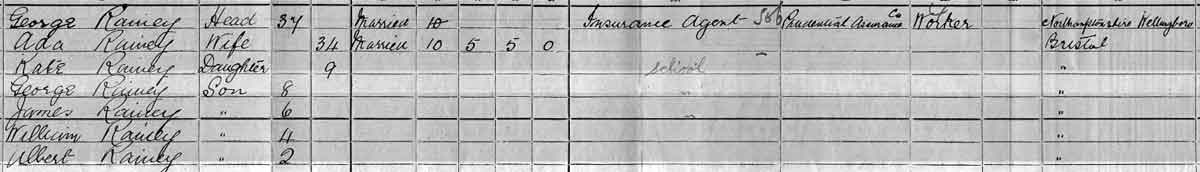 George Rainey Head 37 Married 10 Insurance Agent 586 Prudential Assurance Co Worker Northamptonshire Wellingboro
Ada Rainey Wife 34 Married 10 5 5 0 Bristol
Kate Rainey Daughter 9 school "
George Rainey Son 8 " "
James Rainey " 6 " "
William Rainey " 4 "
Albert Rainey " 2 "